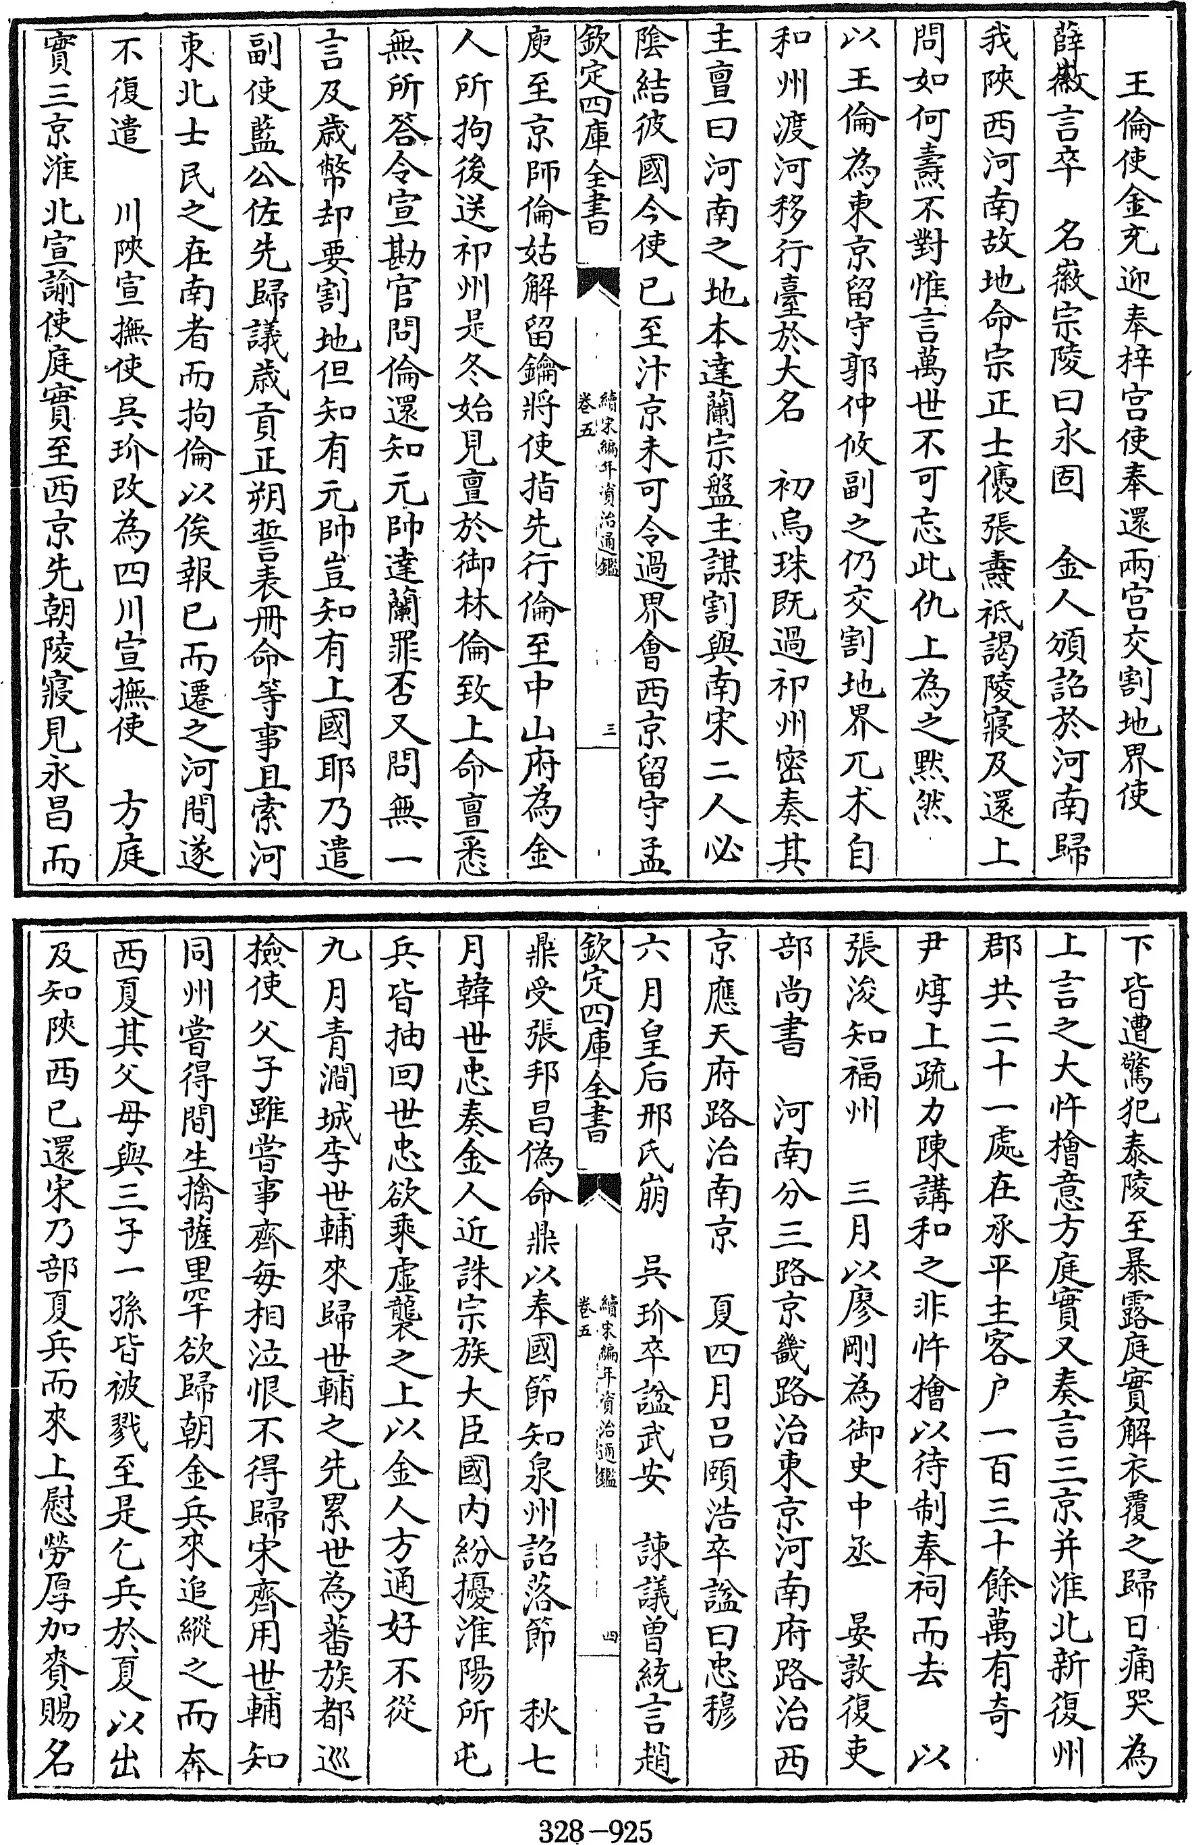 王倫使金充迎奉梓宮使奉還兩宮交割地界使
薛徽言卒　名徽宗陵曰永固　金人頒詔於河南歸
我陜西河南故地命宗正士㒟張燾祗謁陵寢及還上
問如何燾不對惟言萬世不可忘此仇上為之黙然
以王倫為東京留守郭仲攸副之仍交割地界兀术自
和州渡河移行臺於大名　初烏珠既過祁州密奏其
主亶曰河南之地本達蘭宗盤主謀割與南宋二人必
陰結彼國今使已至汴京未可令過界會西京留守孟
欽定四庫全書
續宋編年資治通鑑
卷五
三
庾至京師倫姑解留鑰將使指先行倫至中山府為金
人所拘後送祁州是冬始見亶於御林倫致上命亶悉
無所答令宣勘官問倫還知元帥達蘭罪否又問無一
言及歳幣却要割地但知有元帥豈知有上國耶乃遣
副使藍公佐先歸議歳貢正朔誓表冊命等事且索河
東北士民之在南者而拘倫以俟報已而遷之河間遂
不復遣　川陜宣撫使吳玠改為四川宣撫使　方庭
實三京淮北宣諭使庭實至西京先朝陵寢見永昌而
下皆遭驚犯泰陵至暴露庭實解衣覆之歸日痛哭為
上言之大忤檜意方庭實又奏言三京并淮北新復州
郡共二十一處在承平主客户一百三十餘萬有奇
尹焞上疏力陳講和之非忤檜以待制奉祠而去　以
張浚知福州　三月以廖剛為御史中丞　晏敦復吏
部尚書　河南分三路京畿路治東京河南府路治西
京應天府路治南京　夏四月吕頤浩卒諡曰忠穆
六月皇后邢氏崩　吳玠卒諡武安　諫議曽統言趙
欽定四庫全書
續宋編年資治通鑑
卷五
四
鼎受張邦昌偽命鼎以奉國節知泉州詔落節　秋七
月韓世忠奏金人近誅宗族大臣國内紛擾淮陽所屯
兵皆抽回世忠欲乘虛襲之上以金人方通好不從
九月青澗城李世輔來歸世輔之先累世為蕃族都巡
檢使父子雖嘗事齊每相泣恨不得歸宋齊用世輔知
同州嘗得間生擒薩里罕欲歸朝金兵來追縱之而奔
西夏其父母與三子一孫皆被戮至是乞兵於夏以出
及知陜西已還宋乃部夏兵而來上慰勞厚加賚賜名
328-925